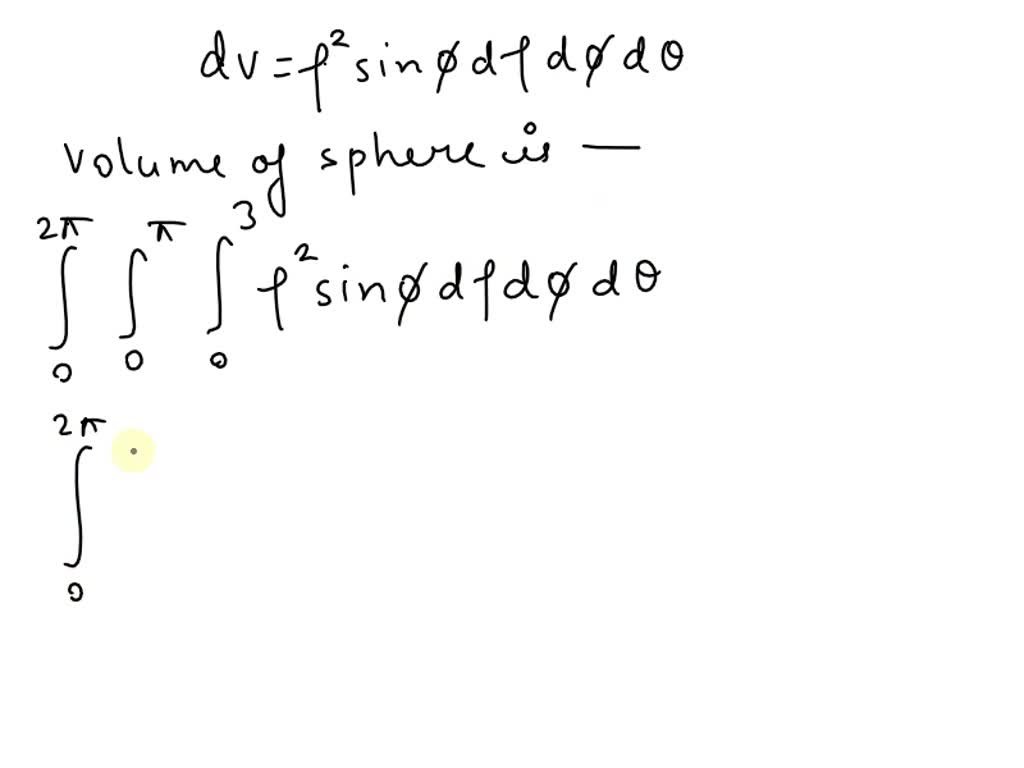 dv = ρ² sin ϕ dρ dϕ dθ
volume of sphere is —
∫₀^2π ∫₀^π ∫₀^3 ρ² sin ϕ dρ dϕ dθ
∫₀^2π